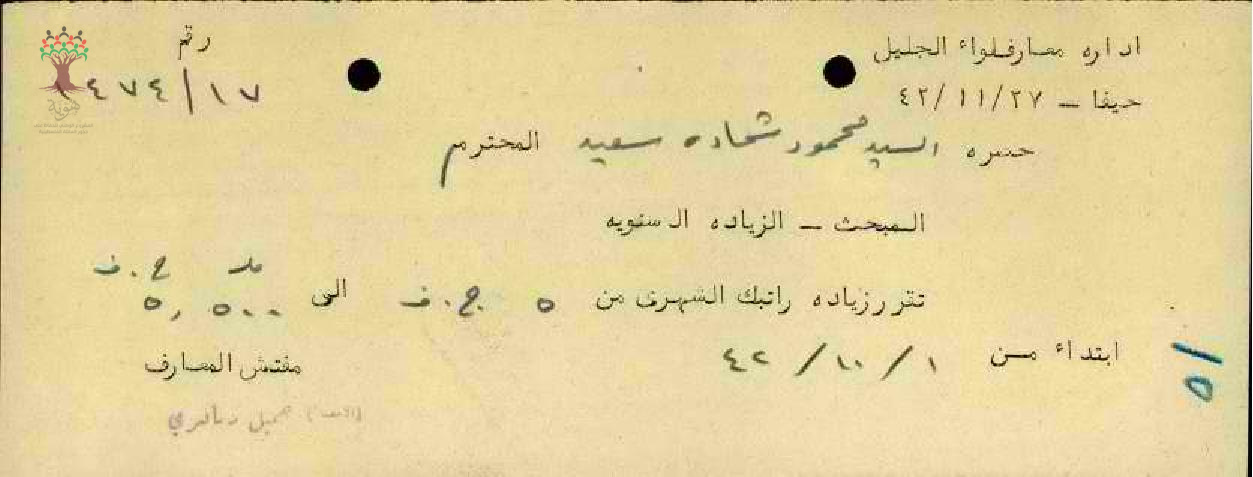 اداره معارف لواء الجليل
رقم
حيفا ــ ٤٢/١١/٢٧
٤٧٤/١٧
هوية
حضره السيد محمود شحاده سعيد المحترم
المبحث ــ الزياده السنويه
تقرر زياده راتبك الشهرى من ٥ ج.ف الى ٥,٥٠٠ مل ج.ف
ابتداء من ١/١٠/٤٢
مفتش المعارف
جميل
٥١